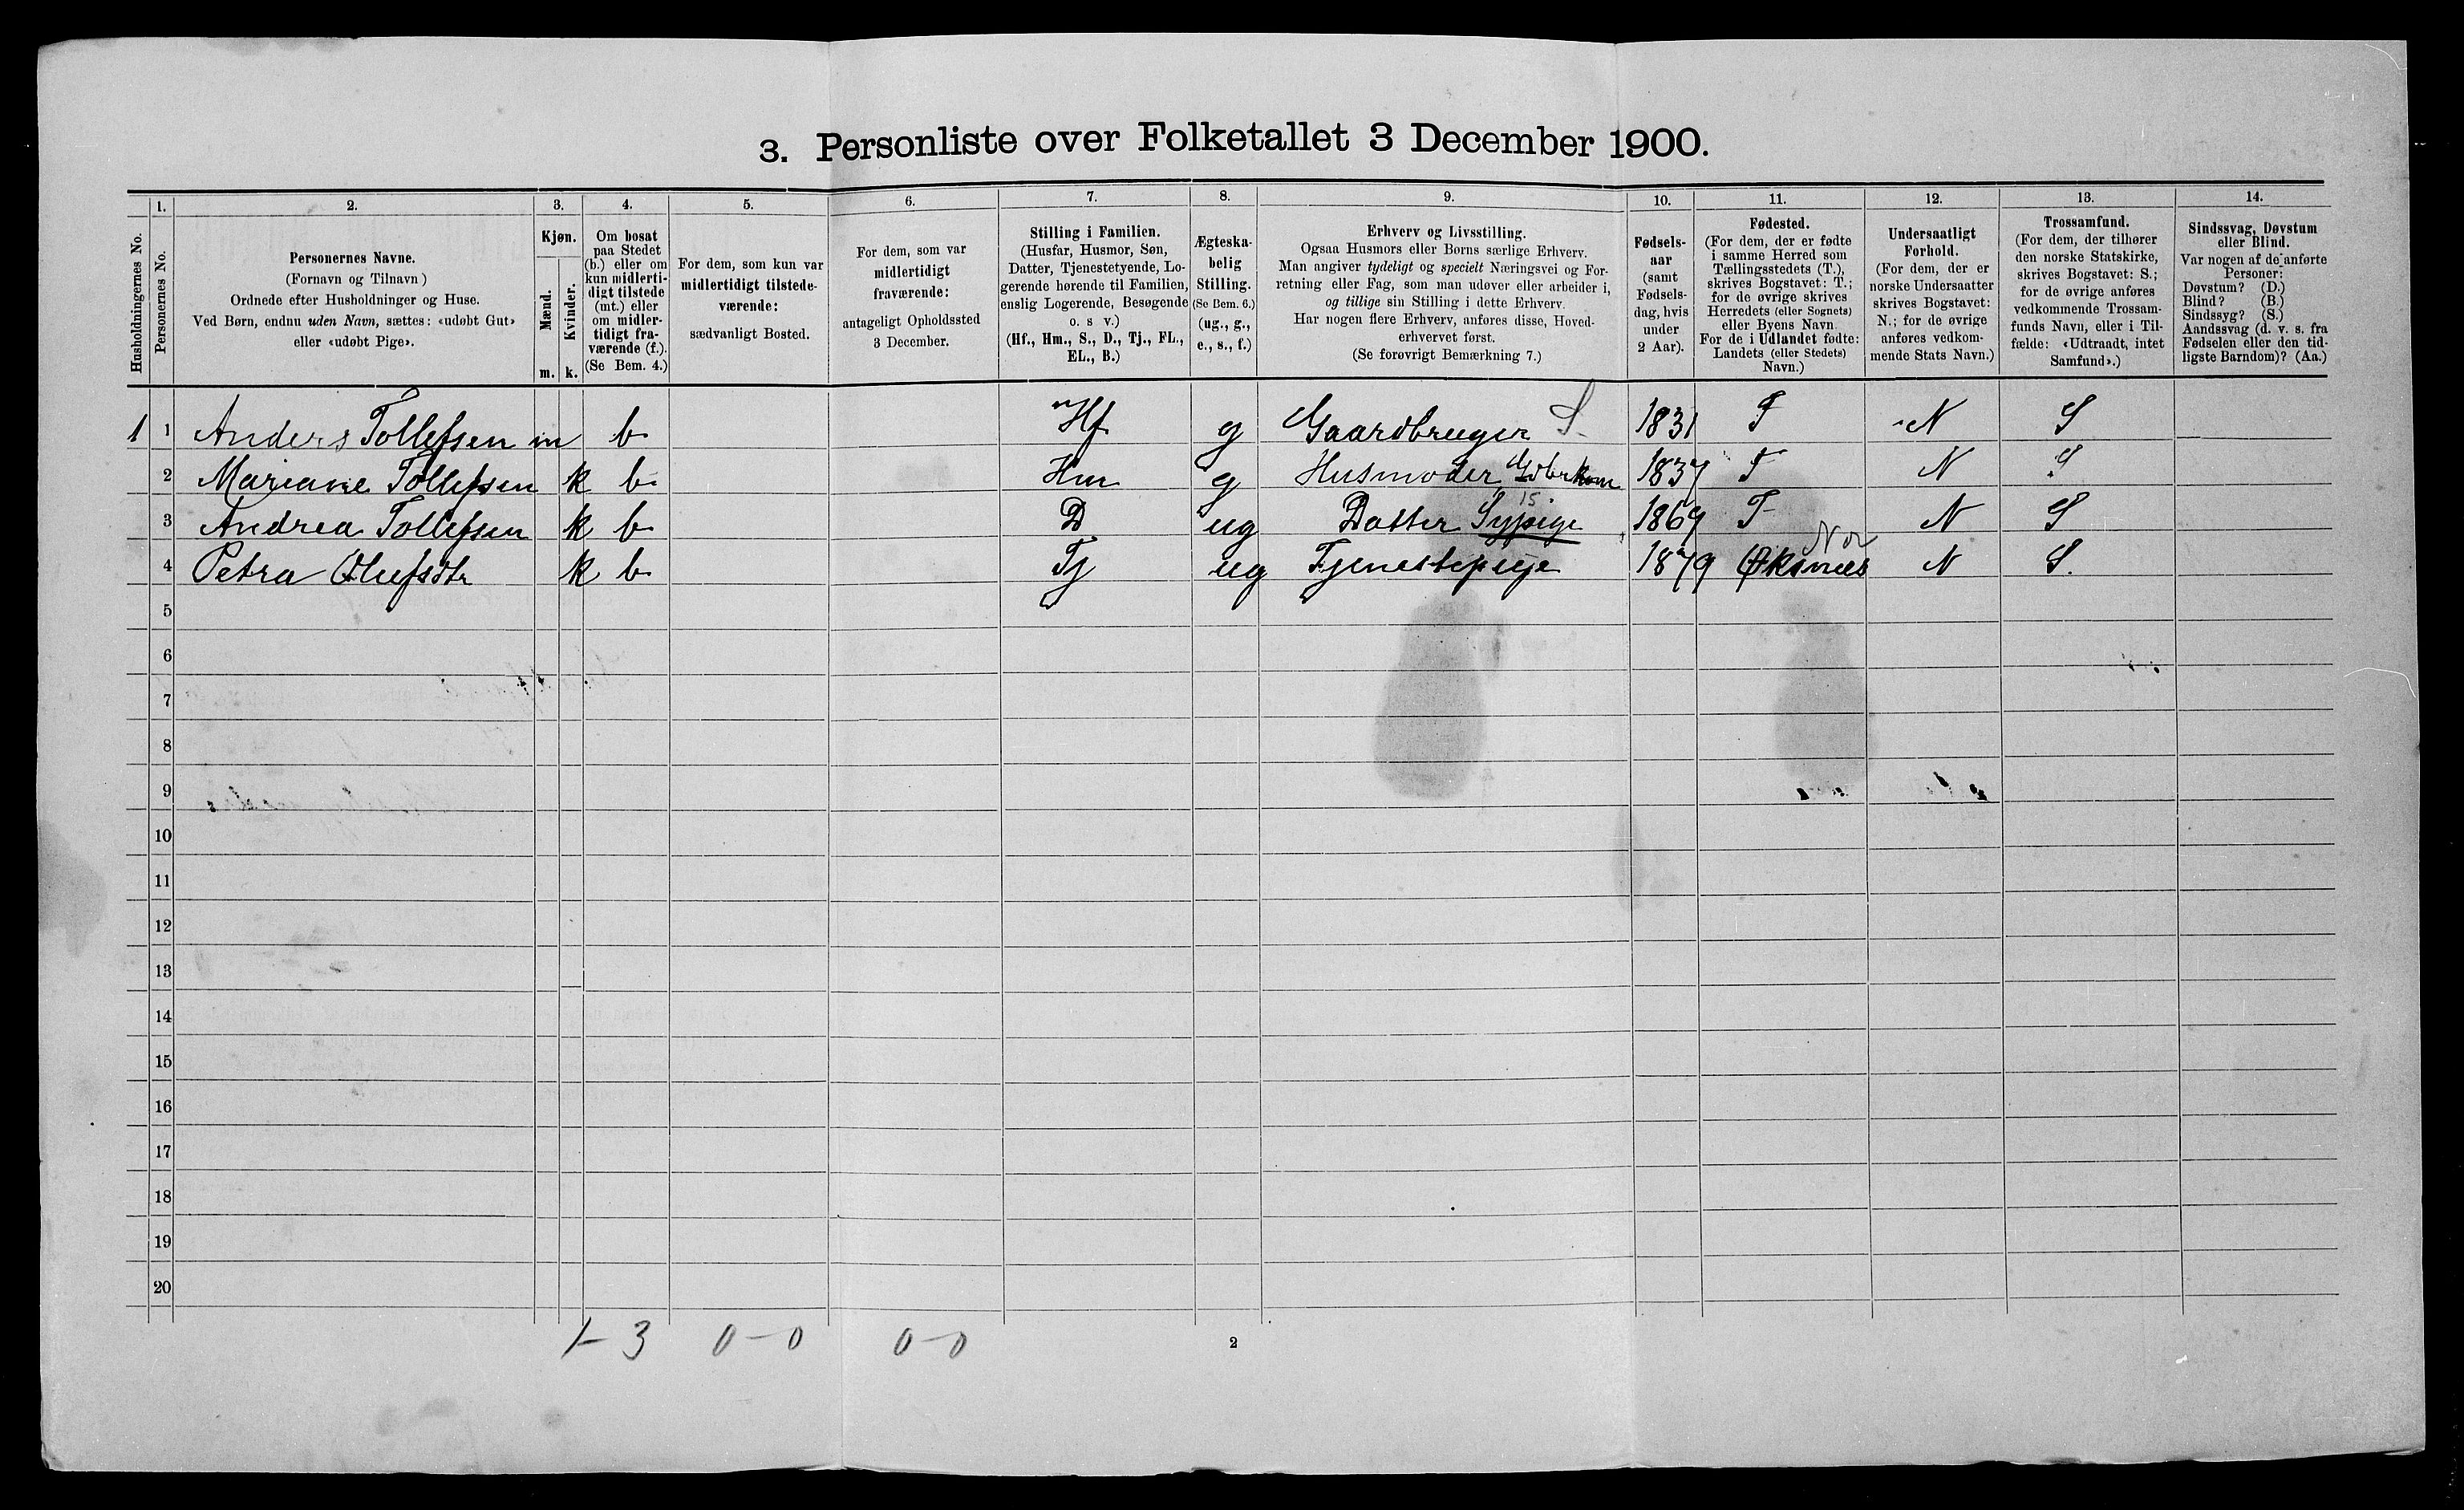 3. Personliste over Folketallet 3 December 1900.
Husholdningernes No.
1.
Personernes No.
2.
Personernes Navne.
(Fornavn og Tilnavn)
Ordnede efter Husholdninger og Huse.
Ved Børn, endnu uden Navn, sættes: «udøbt Gut»
eller «udøbt Pige».
3.
Kjøn.
Mænd.
Kvinder.
m.
k.
4.
Om bosat
paa Stedet
(b.) eller om
kun midlerti-
digt tilstede
(mt.) eller
om midler-
tidigt fra-
værende (f.).
(Se Bem. 4.)
5.
For dem, som kun var
midlertidigt tilstede-
værende:
sædvanligt Bosted.
6.
For dem, som var
midlertidigt
fraværende:
antageligt Opholdssted
3 December.
7.
Stilling i Familien.
(Husfar, Husmor, Søn,
Datter, Tjenestetyende, Lo-
gerende hørende til Familien,
enslig Logerende, Besøgende
o. s v.)
(Hf., Hm., S., D., Tj., FL.,
EL., B.)
8.
Ægteska-
belig
Stilling.
(Se Bem. 6.)
(ug., g.,
e., s., f.)
9.
Erhverv og Livsstilling.
Ogsaa Husmors eller Børns særlige Erhverv.
Man angiver tydeligt og specielt Næringsvei og For-
retning eller Fag, som man udøver eller arbeider i,
og tillige sin Stilling i dette Erhverv.
Har nogen flere Erhverv, anføres disse, Hoved-
erhvervet først.
(Se forøvrigt Bemærkning 7.)
10.
Fødsels-
aar
(samt
Fødsels-
dag, hvis
under
2 Aar).
11.
Fødested.
(For dem, der er fødte
i samme Herred som
Tællingsstedets (T.),
skrives Bogstavet: T.;
for de øvrige skrives
Herredets (eller Sognets)
eller Byens Navn.
For de i Udlandet fødte:
Landets (eller Stedets)
Navn.)
12.
Undersaatligt
Forhold.
(For dem, der er
norske Undersaatter
skrives Bogstavet:
N.; for de øvrige
anføres vedkom-
mende Stats Navn.)
13.
Trossamfund.
(For dem, der tilhører
den norske Statskirke,
skrives Bogstavet: S.;
for de øvrige anføres
vedkommende Trossam-
funds Navn, eller i Til-
fælde: «Udtraadt, intet
Samfund».)
14.
Sindssvag, Døvstum
eller Blind.
Var nogen af de anførte
Personer:
Døvstum? (D.)
Blind? (B.)
Sindssyg? (S.)
Aandssvag (d. v. s. fra
Fødselen eller den tid-
ligste Barndom)? (Aa.)
1 1 Anders Tollefsen m b Hf g Gaardbruger S. 1831 T N S
2 Mariane Tollefsen k b Hm g Husmoder 1837 T N S
15
3 Andrea Tollefsen k b D ug Datter Sypige 1869 T N S
Nor
4 Petra Olufsdtr k b Tj ug Tjenestepige 1879 Øksnes N S.
5
6
7
8
9
10
11
12
13
14
15
16
17
18
19
20
1-3 0-0 0-0
2